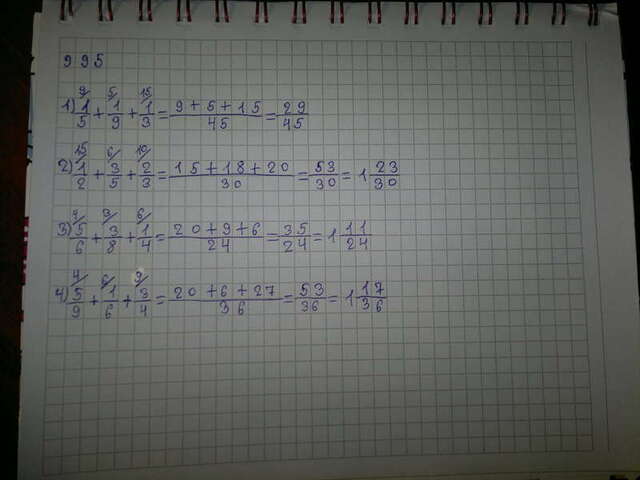 995
1) 9/ 1/5 + 5/ 1/9 + 15/ 1/3 = 9+5+15/45 = 29/45
2) 15/ 1/2 + 6/ 3/5 + 10/ 2/3 = 15+18+20/30 = 53/30 = 1 23/30
3) 4/ 5/6 + 3/ 3/8 + 6/ 1/4 = 20+9+6/24 = 35/24 = 1 11/24
4) 4/ 5/9 + 6/ 1/6 + 9/ 3/4 = 20+6+27/36 = 53/36 = 1 17/36